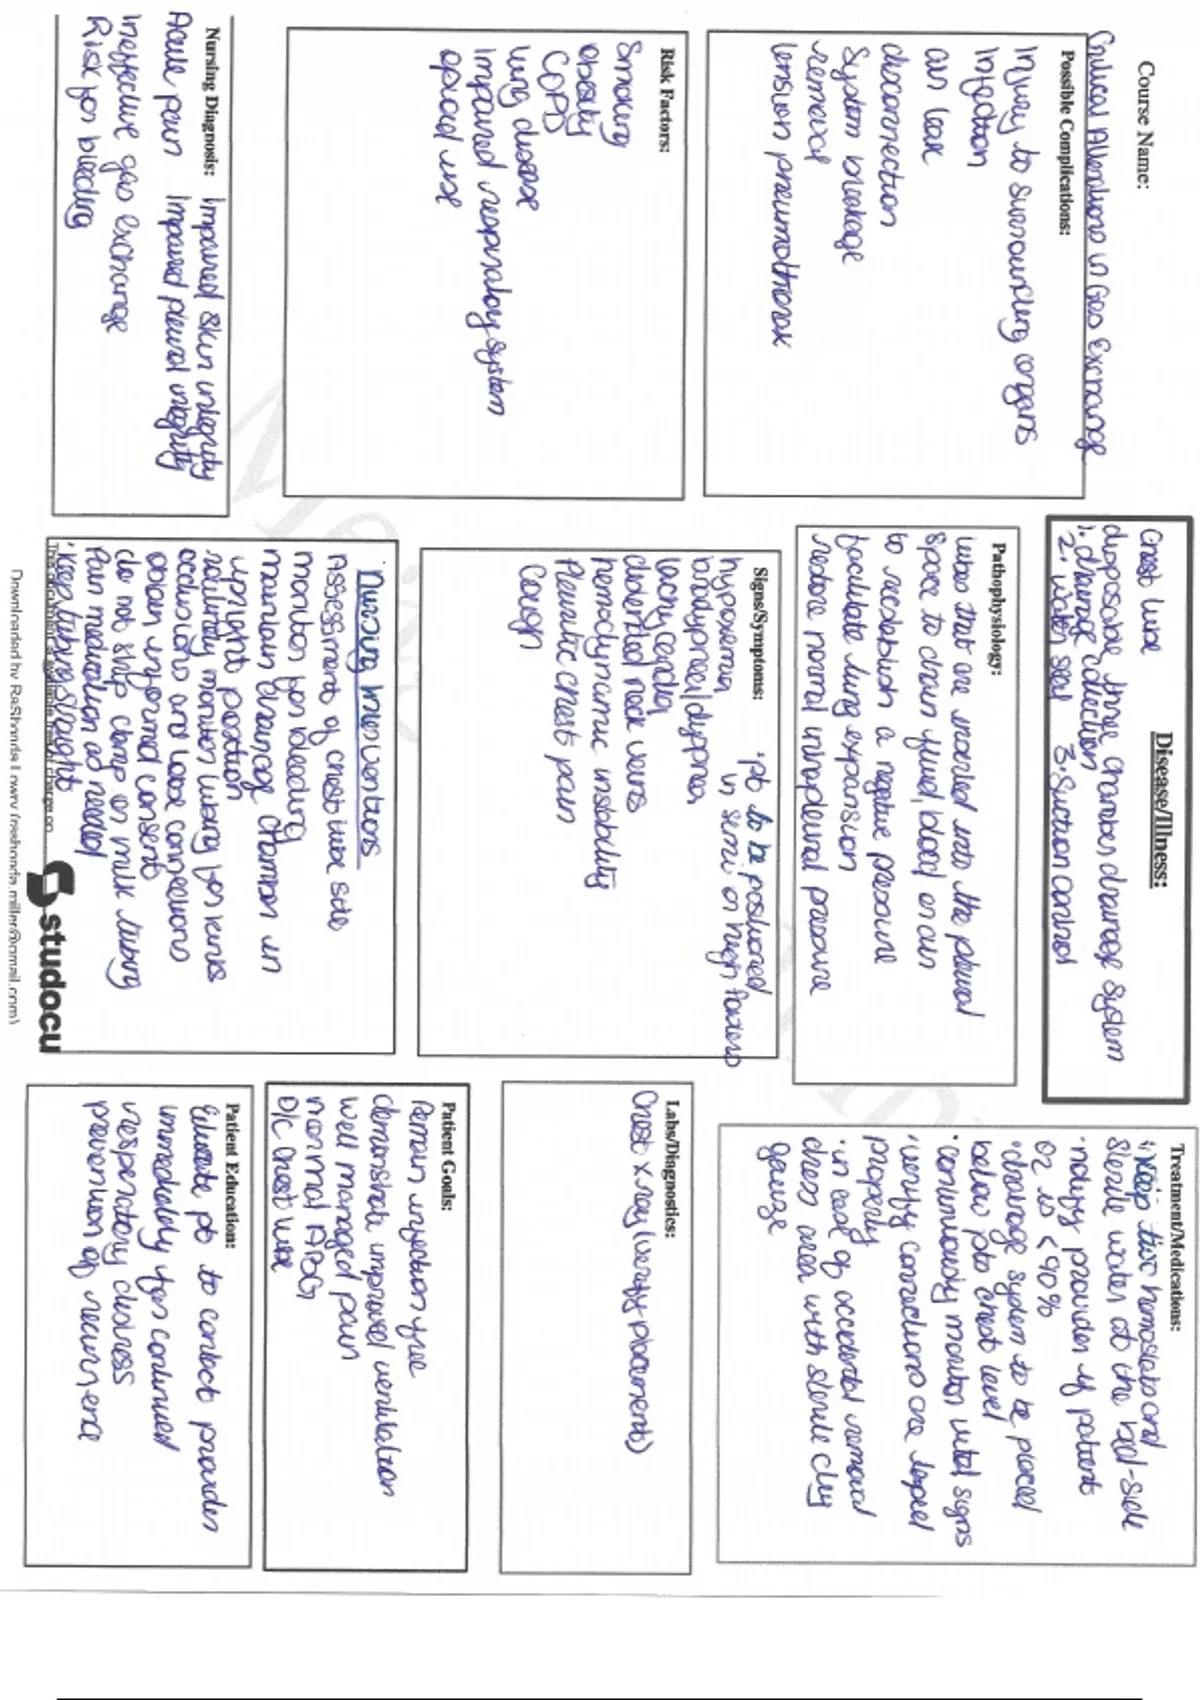 Course Name:
Critical Alterations in Gas Exchange
Possible Complications:
Injury to surrounding organs
Infection
air leak
disconnection
System breakage
removal
tension pneumothorax
Risk Factors:
Smoking
obesity
COPD
lung disease
Impaired respiratory system
opioid use
Nursing Diagnosis: Impaired skin integrity
Acute pain Impaired pleural integrity
Ineffective gas exchange
Risk for bleeding
Disease/Illness:
Chest tube
disposable three chamber drainage system
1. drainage collection
2. water seal 3. Suction control
Pathophysiology:
tubes that are inserted into the pleural
space to drain fluid, blood or air
to reestablish a negative pressure
facilitate lung expansion
restore normal intrapleural pressure
Signs/Symptoms:
•pt to be positioned
in semi or high fowlers
hypoxemia
bradypnea/dyspnea
tachycardia
distended neck veins
hemodynamic instability
Pleuritic chest pain
Cough
Nursing Interventions
Assessment of chest tube site
monitor for bleeding
maintain drainage chamber in
upright position
routinely monitor tubing for kinks
occlusions and loose connections
obtain informed consent
do not strip clamp or milk tubing
Pain medication as needed
•Keep tubing straight
This document is available free of charge on
studocu
Downloaded by RaShonda Lowry (rashonda.miller@gmail.com)
Treatment/Medications:
•Keep two hemostats and
sterile water at the bed-side
•notify provider if patient
O2 is <90%
•drainage system to be placed
below pts chest level
•continuously monitor vital signs
•verify connections are taped
properly
•in case of accidental removal
dress area with sterile dry
gauze
Labs/Diagnostics:
Chest x ray (verify placement)
Patient Goals:
Remain infection free
demonstrate improved ventilation
well managed pain
normal ABG
D/C chest tube
Patient Education:
Educate pt to contact provider
immediately for continued
respiratory distress
prevention of recurrence